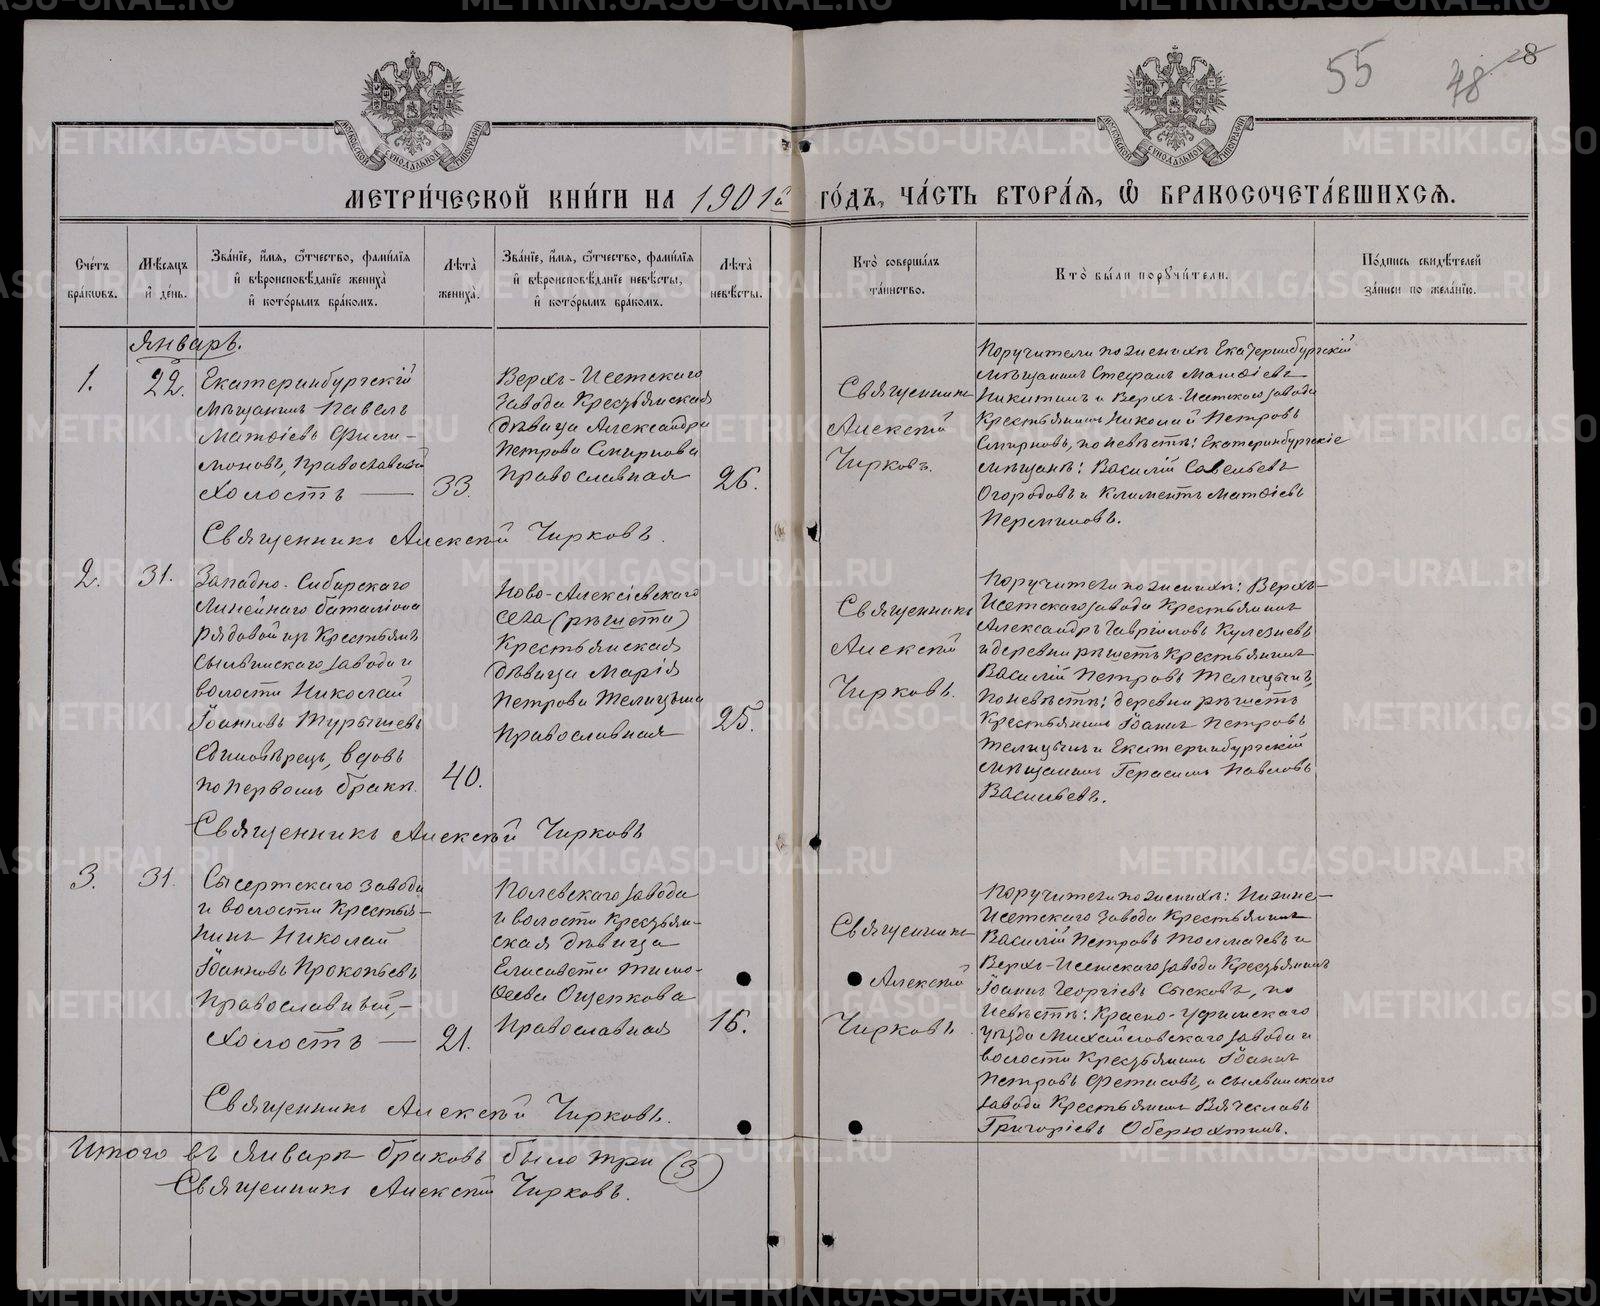 55
48
8
МОСКОВСКОЙ СѴНОДАЛЬНОЙ ТИПОГРАФІИ
МОСКОВСКОЙ СѴНОДАЛЬНОЙ ТИПОГРАФІИ
МЕТРИ́ЧЕСКОЙ КНИ́ГИ НА 1901й ГО́ДЪ, ЧА́СТЬ ВТОРА́Я, Ѽ БРАКОСОЧЕТА́ВШИХСЯ.
Сче́тъ
бра́ковъ.
Мѣ́сяцъ
и҆ де́нь.
Зва́нїе, и҆́мя, ѻ҆́тчество, фами́лїя
и҆ вѣроисповѣ́данїе жениха̀
и҆ кото́рымъ бра́комъ.
Лѣта̀
жениха̀.
Зва́нїе, и҆́мя, ѻ҆́тчество, фами́лїя
и҆ вѣроисповѣ́данїе невѣ́сты,
и҆ кото́рымъ бра́комъ.
Лѣта̀
невѣ́сты.
Кто̀ соверша́лъ
та́инство.
Кто̀ бы́ли порꙋчи́тели.
По́дпись свидѣ́телей
за́писи по жела́нїю.
Январь.
1.
22.
Екатеринбургскій
мѣщанинъ Павелъ
Матѳіевъ Фили-
моновъ, Православный
Холостъ —
33.
Верхъ-Исетскаго
завода Крестьянская
дѣвица Александра
Петрова Смирнова
Православная
26.
Священникъ
Алексѣй
Чирковъ.
Поручители по женихѣ Екатеринбургскій
мѣщанинъ Стефанъ Матѳіевъ
Никитинъ и Верхъ-Исетскаго завода
Крестьянинъ Николай Петровъ
Смирновъ, по невѣстѣ: Екатеринбургскіе
мѣщане: Василій Савельевъ
Огородовъ и Климентъ Матѳіевъ
Перминовъ.
Священникъ Алексѣй Чирковъ.
2.
31.
Западно-Сибирскаго
Линейнаго баталіона
рядовой изъ Крестьянъ
Сылвинскаго завода и
волости Николай
Іоанновъ Турышевъ
Единовѣрецъ, вдовъ
по первомъ бракѣ.
40.
Ново-Алексіевскаго
села (рѣшета)
Крестьянская
дѣвица Марія
Петрова Телицына
Православная
25.
Священникъ
Алексѣй
Чирковъ.
Поручители по женихѣ: Верхъ-
Исетскаго завода Крестьянинъ
Александръ Гавріиловъ Кулезневъ
и деревни рѣшетъ Крестьянинъ
Василій Петровъ Телицынъ,
По невѣстѣ: деревни рѣшетъ
Крестьянинъ Іоаннъ Петровъ
Телицынъ и Екатеринбургскій
мѣщанинъ Герасимъ Павловъ
Васильевъ.
Священникъ Алексѣй Чирковъ
3.
31.
Сысертскаго завода
и волости Крестья-
нинъ Николай
Іоанновъ Прокопьевъ
Православный, —
Холостъ —
21.
Полевскаго завода
и волости Крестьян-
ская дѣвица
Елисавета Тимо-
ѳеева Ощепкова
Православная
16.
Священникъ
Алексѣй
Чирковъ
Поручители по женихѣ: Нижне-
Исетскаго завода Крестьянинъ
Василій Петровъ Толмачевъ и
Верхъ-Исетскаго завода Крестьянинъ
Іоаннъ Георгіевъ Сысковъ, по
Невѣстѣ: Красно-Уфимскаго
уѣзда Михайловскаго завода и
волости Крестьянинъ Іоаннъ
Петровъ Фетисовъ, и Сылвинскаго
завода Крестьянинъ Вячеславъ
Григоріевъ Оберюхтинъ.
Священникъ Алексѣй Чирковъ.
Итого въ Январѣ браковъ было три (3)
Священникъ Алексѣй Чирковъ.
METRIKI.GASO-URAL.RU